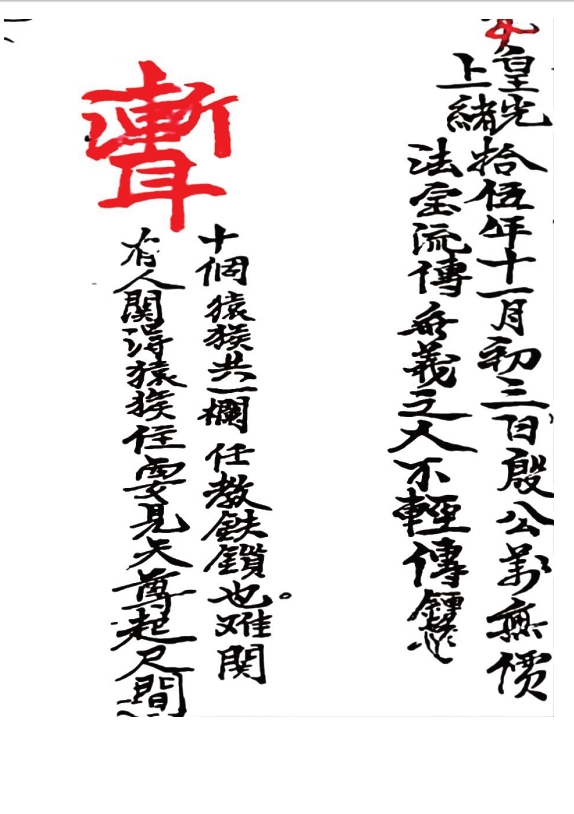 皇上光緒拾伍年十一月初三日殷公萬無價
法宝流傳無義之人不輕傳
漸耳
十個猿猴共一欄任教鉄鎖也难関。
有人関得猿猴住要見天尊起尺間